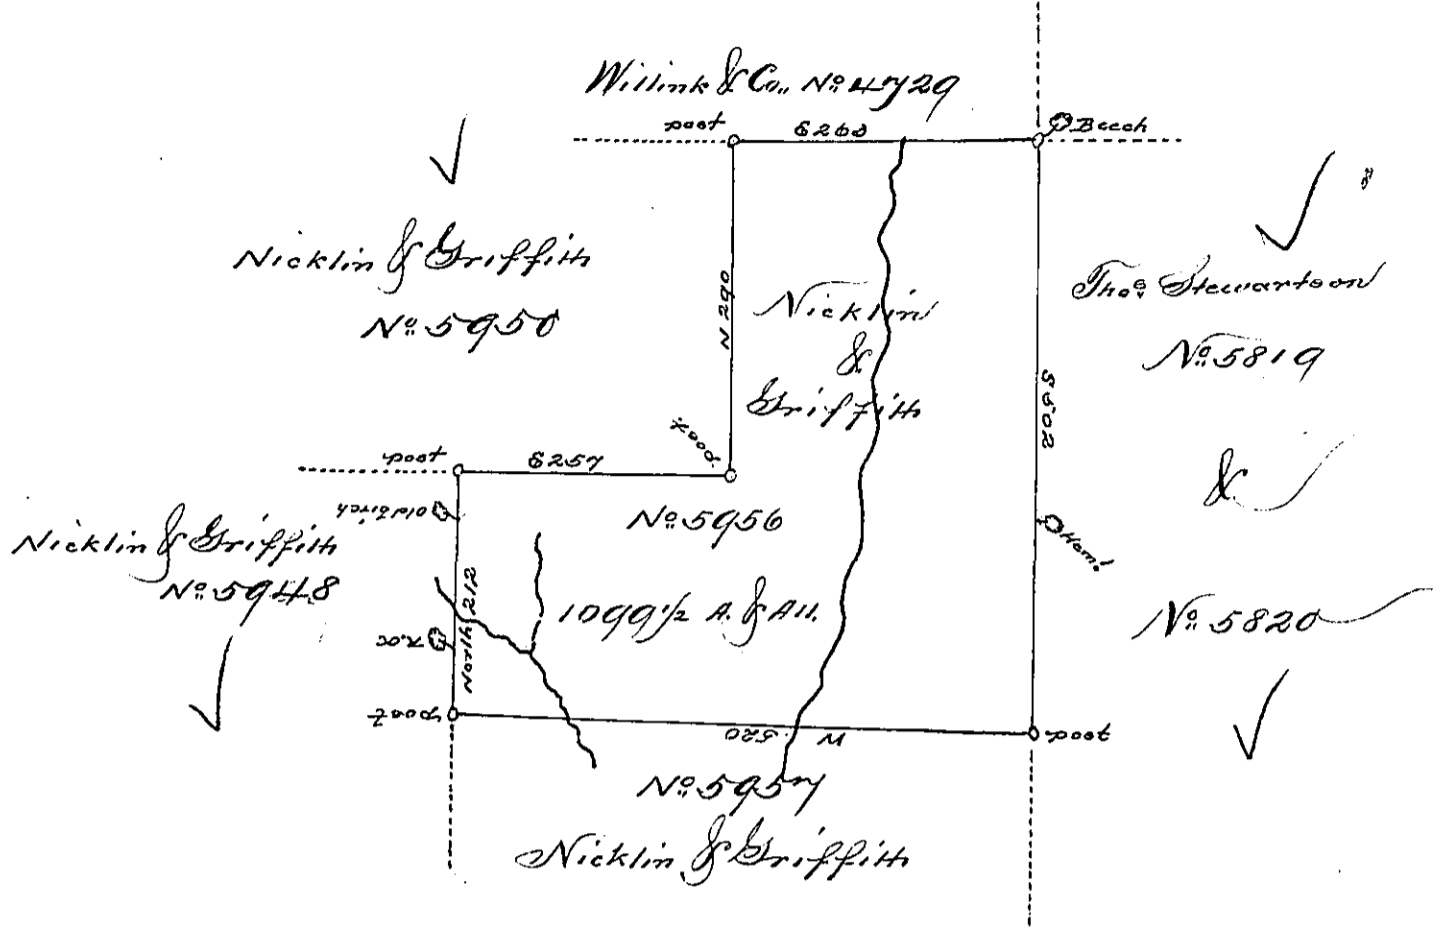 Willink & Co,, No 4729
post
E 263
Beech
Nicklin & Griffith
No 5950
N 290
Nicklin
&
Griffith
Thos Stewartson
No 5819
&
No 5820
S 502
post
E 257
post
old birch
Nicklin & Griffith
No 5948
No 5956
Hem!
1099 1/2 A. & All.
North 212
post
W 520
post
No 5957
Nicklin & Griffith